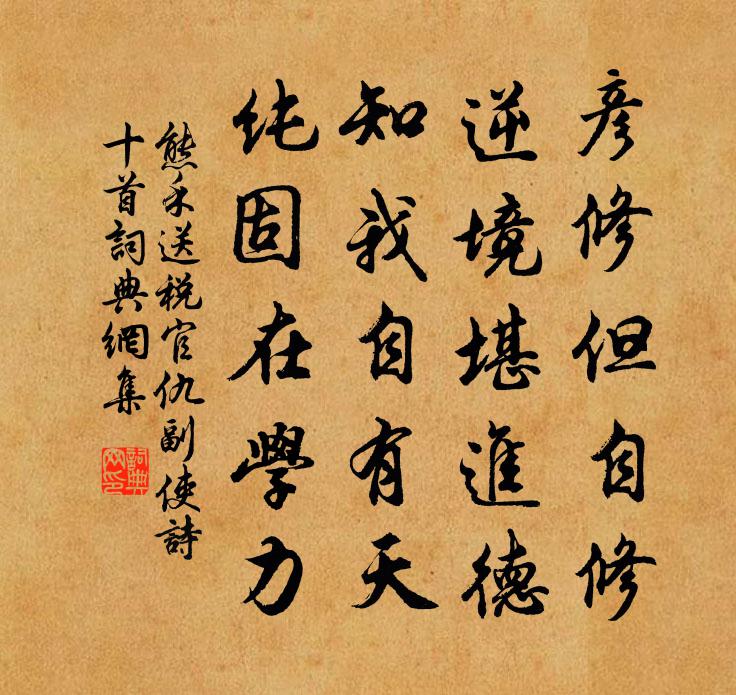 彦修但自修
逆境堪進德
知我自有天
純固在學力
熊禾送税官仇副使詩
十首詞典網集
詞典網印